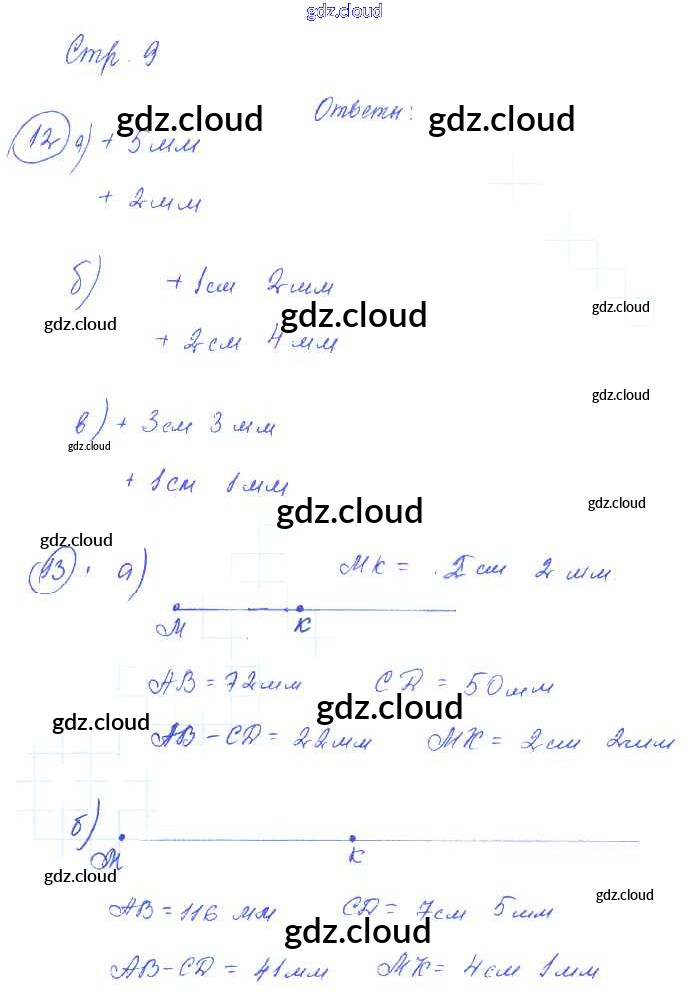 gdz.cloud
Стр. 9
Ответы:
gdz.cloud gdz.cloud
12 а) + 5 мм
+ 2 мм
б) + 1 см 2 мм
gdz.cloud gdz.cloud gdz.cloud
+ 2 см 4 мм
gdz.cloud
в) + 3 см 3 мм
gdz.cloud
+ 1 см 1 мм
gdz.cloud gdz.cloud
gdz.cloud
13. а) МК = 2 см 2 мм.
М К
АВ = 72 мм СД = 50 мм
gdz.cloud gdz.cloud
АВ - СД = 22 мм МК = 2 см 2 мм
б)
М К
gdz.cloud gdz.cloud
АВ = 116 мм СД = 7 см 5 мм
gdz.cloud
АВ - СД = 41 мм МК = 4 см 1 мм